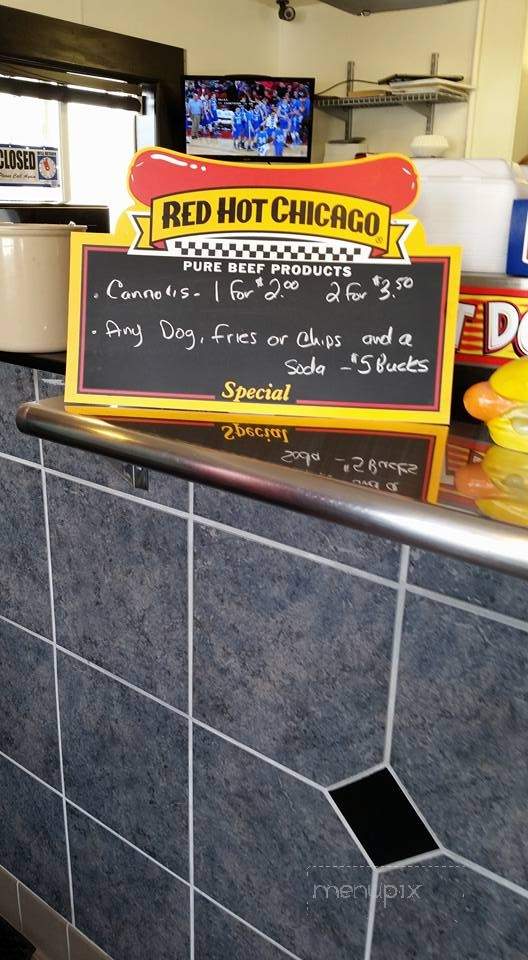 CLOSED
Please Call Again
RED HOT CHICAGO
PURE BEEF PRODUCTS
. Cannolis - 1 for $2.00 2 for $3.50
. Any Dog, fries or chips and a
Soda - $5 Bucks
Special
T DO
menupix